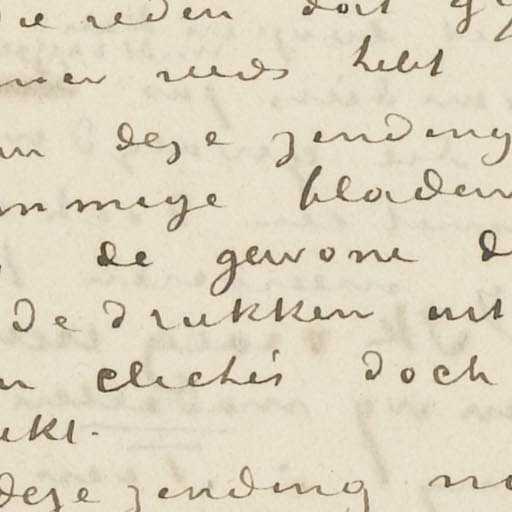 die reden dat g
reeds hebt
deze zending
ommige bladen
de gewone d
de drukken uit
clichés doch
ukt.
deze zending no